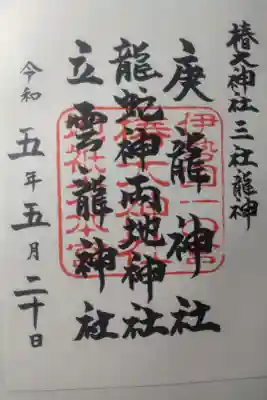 椿大神社三社龍神
庚龍神社
龍蛇神両地神社
立雲龍神社
令和五年五月二十日
伊勢国一の宮
椿大神社